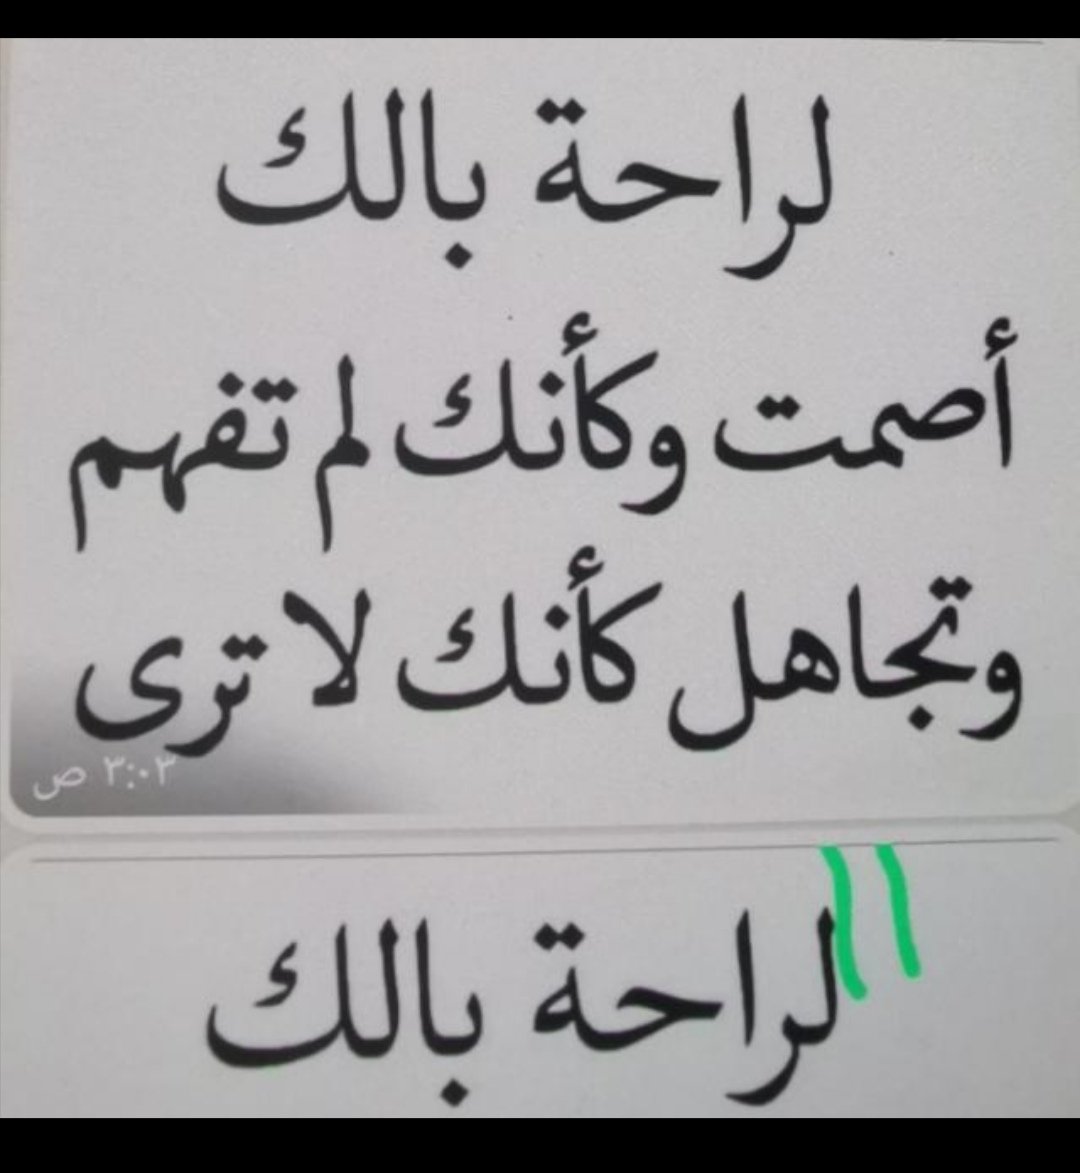 لراحة بالك
أصمت وكأنك لم تفهم
وتجاهل كأنك لا ترى
٣:٠٣ ص
لراحة بالك